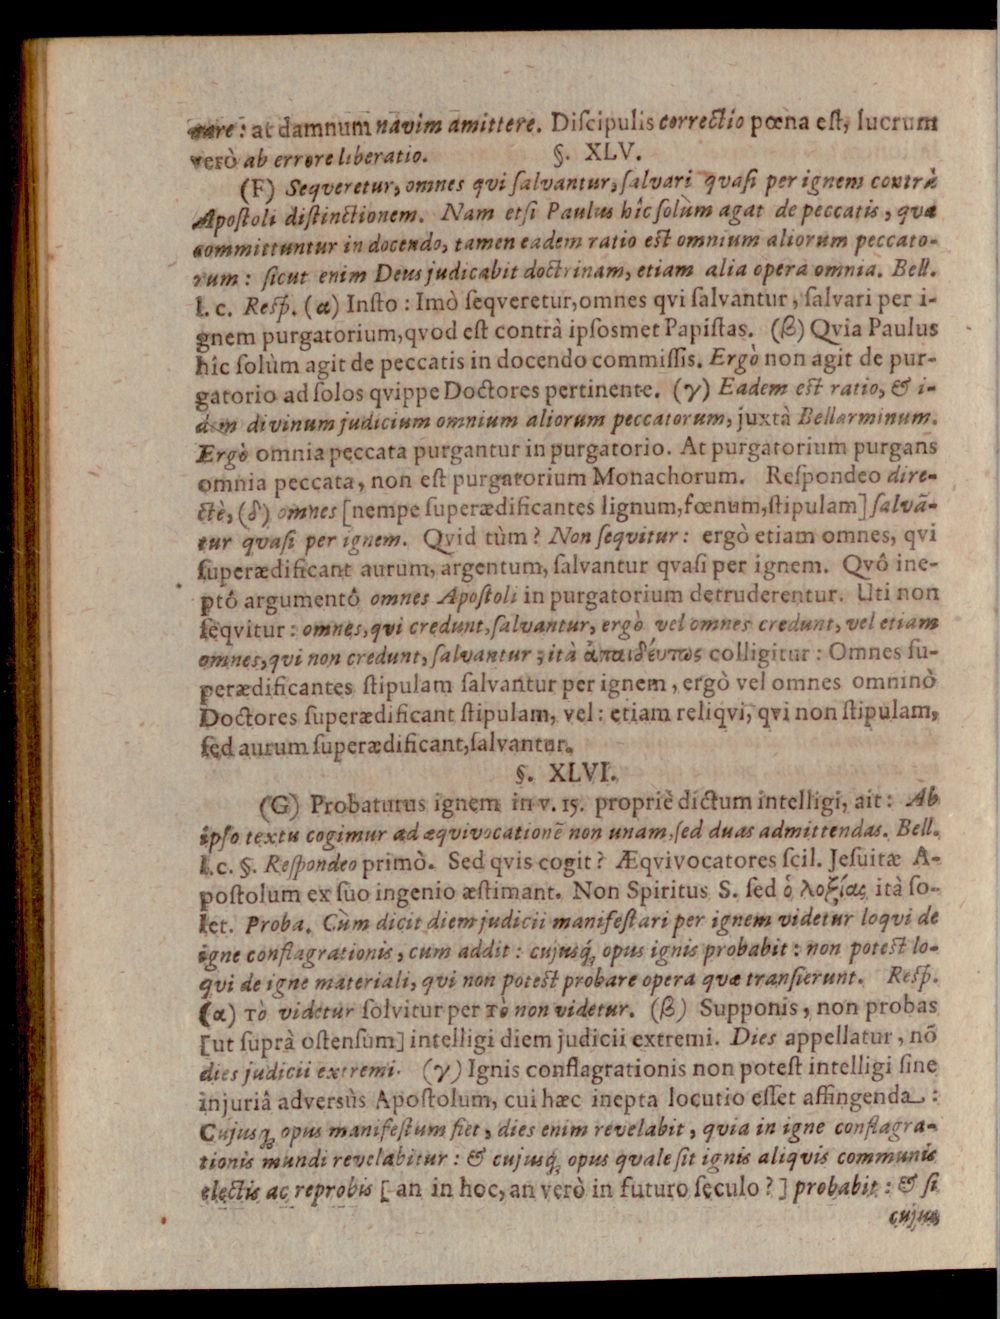 care: at damnum navim amittere. Diſcipulis correctio pœna eſt, lucrum
verò ab errore liberatio. §. XLV.
(F) Seqveretur, omnes qvi ſalvantur, ſalvari qvaſi per ignem contrà
Apoſtoli diſtinctionem. Nam etſi Paulus hîc ſolùm agat de peccatis, qvæ
committuntur in docendo, tamen eadem ratio eſt omnium aliorum peccato-
rum: ſicut enim Deus judicabit doctrinam, etiam alia opera omnia. Bell.
l. c. Reſp. (α) Inſto: Imò ſeqveretur, omnes qvi ſalvantur, ſalvari per i-
gnem purgatorium, qvod eſt contrà ipſosmet Papiſtas. (β) Qvia Paulus
hîc ſolùm agit de peccatis in docendo commiſſis. Ergò non agit de pur-
gatorio ad ſolos qvippe Doctores pertinente. (γ) Eadem eſt ratio, & i-
dem divinum judicium omnium aliorum peccatorum, juxtà Bellarminum.
Ergò omnia peccata purgantur in purgatorio. At purgatorium purgans
omnia peccata, non eſt purgatorium Monachorum. Reſpondeo dire-
ctè, (δ) omnes [nempe ſuperædificantes lignum, fœnum, ſtipulam] ſalvã-
tur qvaſi per ignem. Qvid tùm? Non ſeqvitur: ergò etiam omnes, qvi
ſuperædificant aurum, argentum, ſalvantur qvaſi per ignem. Qvô ine-
ptô argumentô omnes Apoſtoli in purgatorium detruderentur. Uti non
ſeqvitur: omnes, qvi credunt, ſalvantur, ergò vel omnes credunt, vel etiam
omnes, qvi non credunt, ſalvantur; ità ἀπαιδέυτως colligitur: Omnes ſu-
perædificantes ſtipulam ſalvantur per ignem, ergò vel omnes omninò
Doctores ſuperædificant ſtipulam, vel: etiam reliqvi, qvi non ſtipulam,
ſed aurum ſuperædificant, ſalvantur.
§. XLVI.
(G) Probaturus ignem in v. 15. propriè dictum intelligi, ait: Ab
ipſo textu cogimur ad æqvivocationẽ non unam, ſed duas admittendas. Bell.
l. c. §. Reſpondeo primò. Sed qvis cogit? Æqvivocatores ſcil. Jeſuitæ A-
poſtolum ex ſuo ingenio æſtimant. Non Spiritus S. ſed ὁ λοξίας ità ſo-
let. Proba. Cùm dicit diem judicii manifeſtari per ignem videtur loqvi de
igne conflagrationis, cum addit: cujusq́; opus ignis probabit: non poteſt lo-
qvi de igne materiali, qvi non poteſt probare opera quæ tranſierunt. Reſp.
(α) τὸ videtur ſolvitur per τὸ non videtur. (β) Supponis, non probas
[ut ſuprà oſtenſum] intelligi diem judicii extremi. Dies appellatur, nõ
dies judicii extremi. (γ) Ignis conflagrationis non poteſt intelligi ſine
injuriâ adversùs Apoſtolum, cui hæc inepta locutio eſſet affingenda:
Cujusq; opus manifeſtum fiet, dies enim revelabit, qvia in igne conflagra-
tionis mundi revelabitur: & cujusq́; opus qvale ſit ignis aliqvis communis
electis ac reprobis [an in hoc, an verò in futuro ſeculo?] probabit: & ſi
cujus